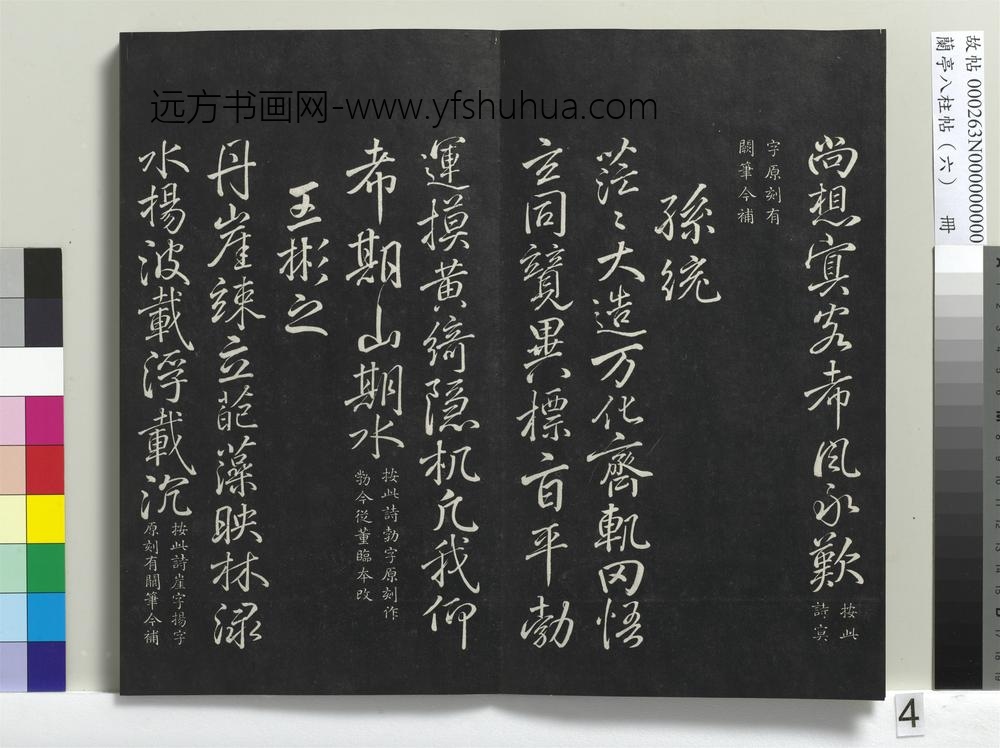 远方书画网-www.yfshuhua.com
故帖 000263N000000000
蘭亭八柱帖（六） 冊
尚想冥客希風永歎
按此
詩冥
字原刻有
闕筆今補
孫統
茫〻大造万化齊軌罔悟
玄同競異標旨平勃
運摸黃綺隐机凡我仰
希期山期水
按此詩勃字原刻作
勃今從董臨本改
王彬之
丹崖竦立葩藻映林渌
水揚波載浮載沉
按此詩崖字揚字
原刻有闕筆今補
4